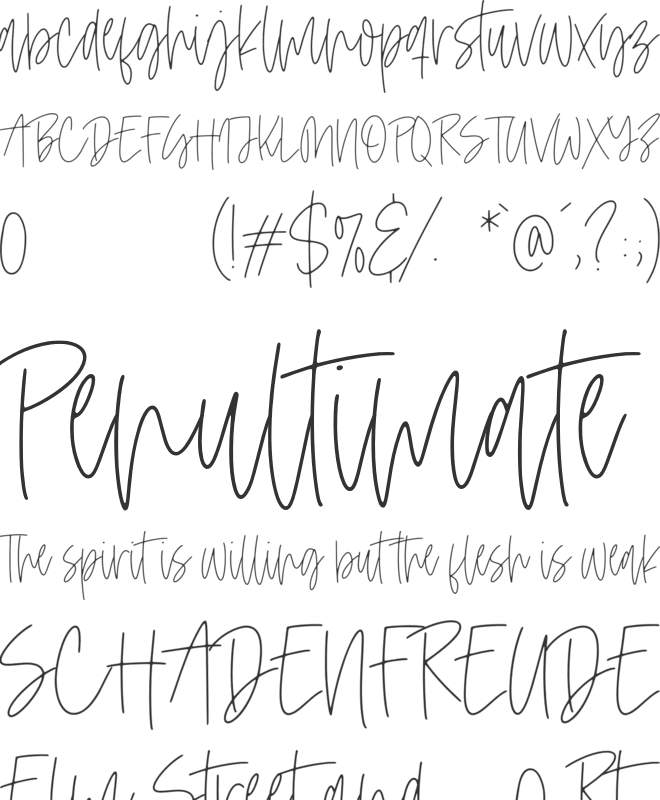 abcdefghijklmnopqrstuvwxyz
ABCDEFGHIJKLMNOPQRSTUVWXYZ
0 (!#$%&/. *`@´,?:;)
Penultimate
The spirit is willing but the flesh is weak
SCHADENFREUDE
Elm Street and